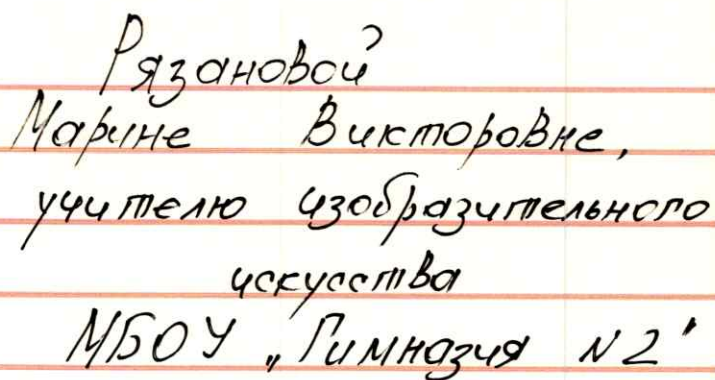 Рязановой
Марине Викторовне,
учителю изобразительного
искусства
МБОУ „Гимназия N2"